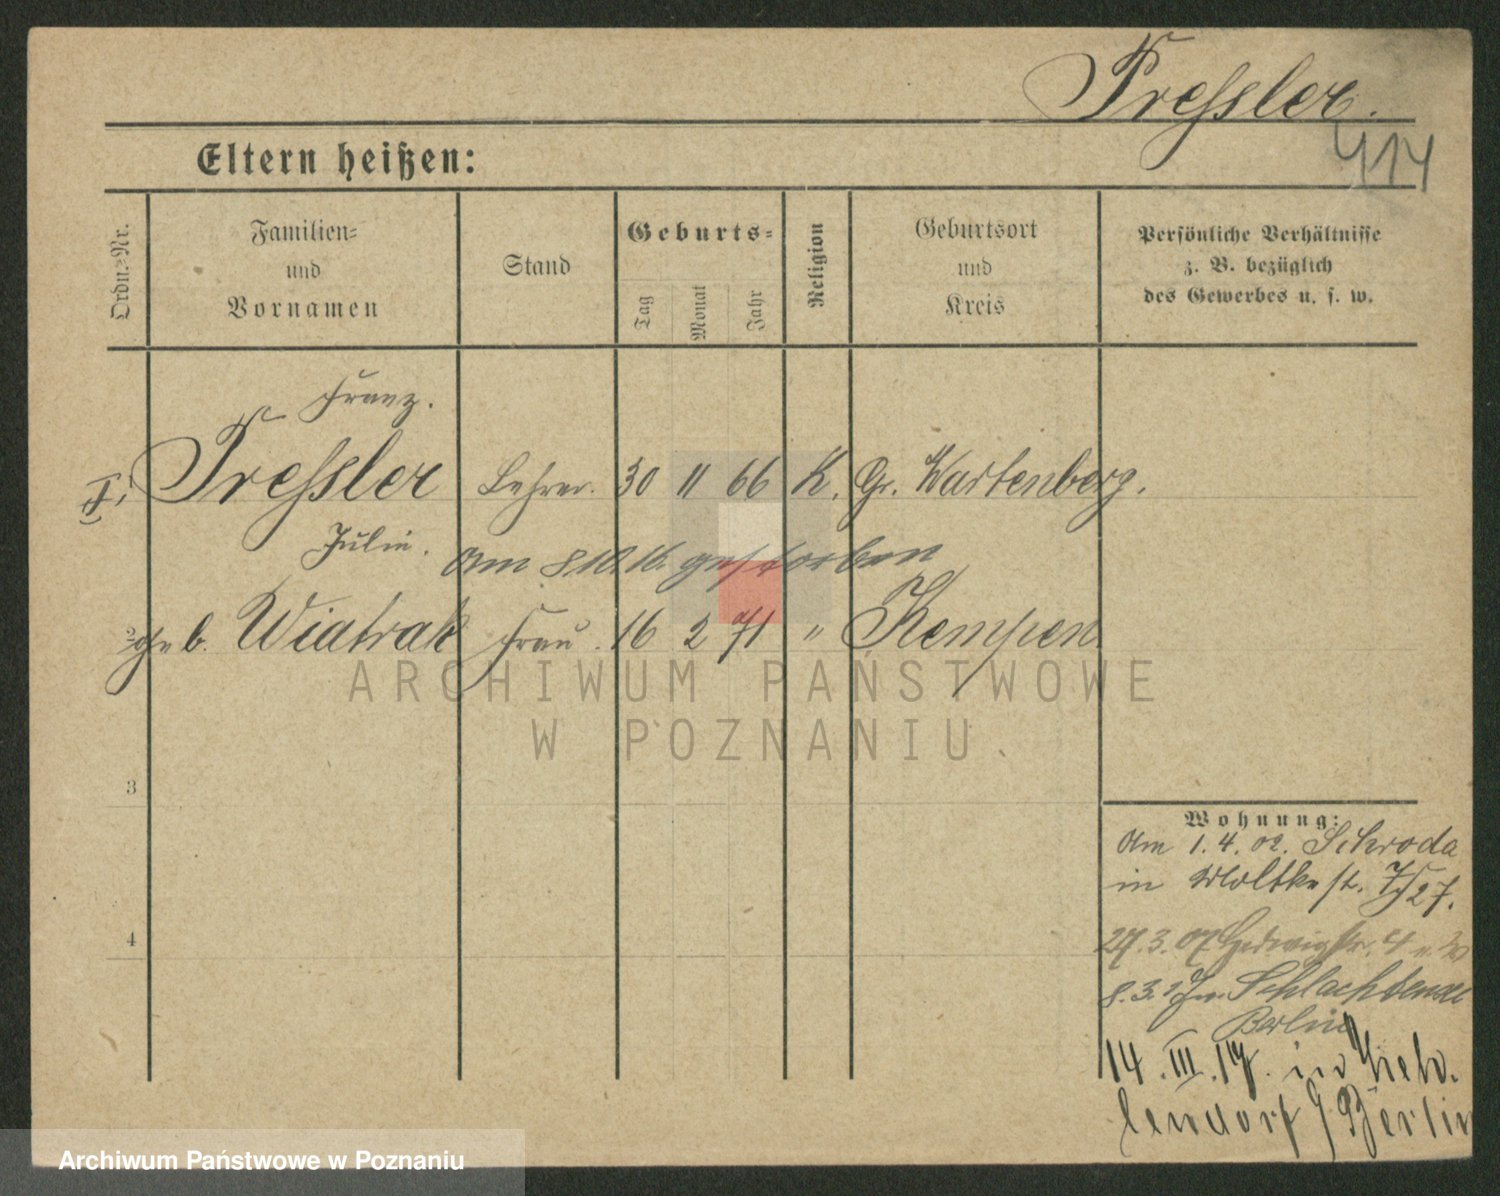 Pressler.
414
Eltern heißen:
Ordn.-Nr.
Familien-
und
Vornamen
Stand
Geburts-
Tag
Monat
Jahr
Religion
Geburtsort
und
Kreis
Persönliche Verhältnisse
z. B. bezüglich
des Gewerbes u. s. w.
Franz.
Pressler Lehrer. 30 11 66 K. Gr. Wartenberg.
Julie.
Am 8.10.16. gestorben
2 geb. Wiatrak Frau. 16 2 71 " Kempen.
ARCHIWUM PAŃSTWOWE
W POZNANIU
3
4
Wohnung:
Am 1. 4. 02. Schroda
in Moltkestr. 27.
27. 3. 07. Hedwigstr. 4
8. 3. Schlachtensee
Berlin
14. III. 17. in Zeh-
lendorf / Berlin
Archiwum Państwowe w Poznaniu